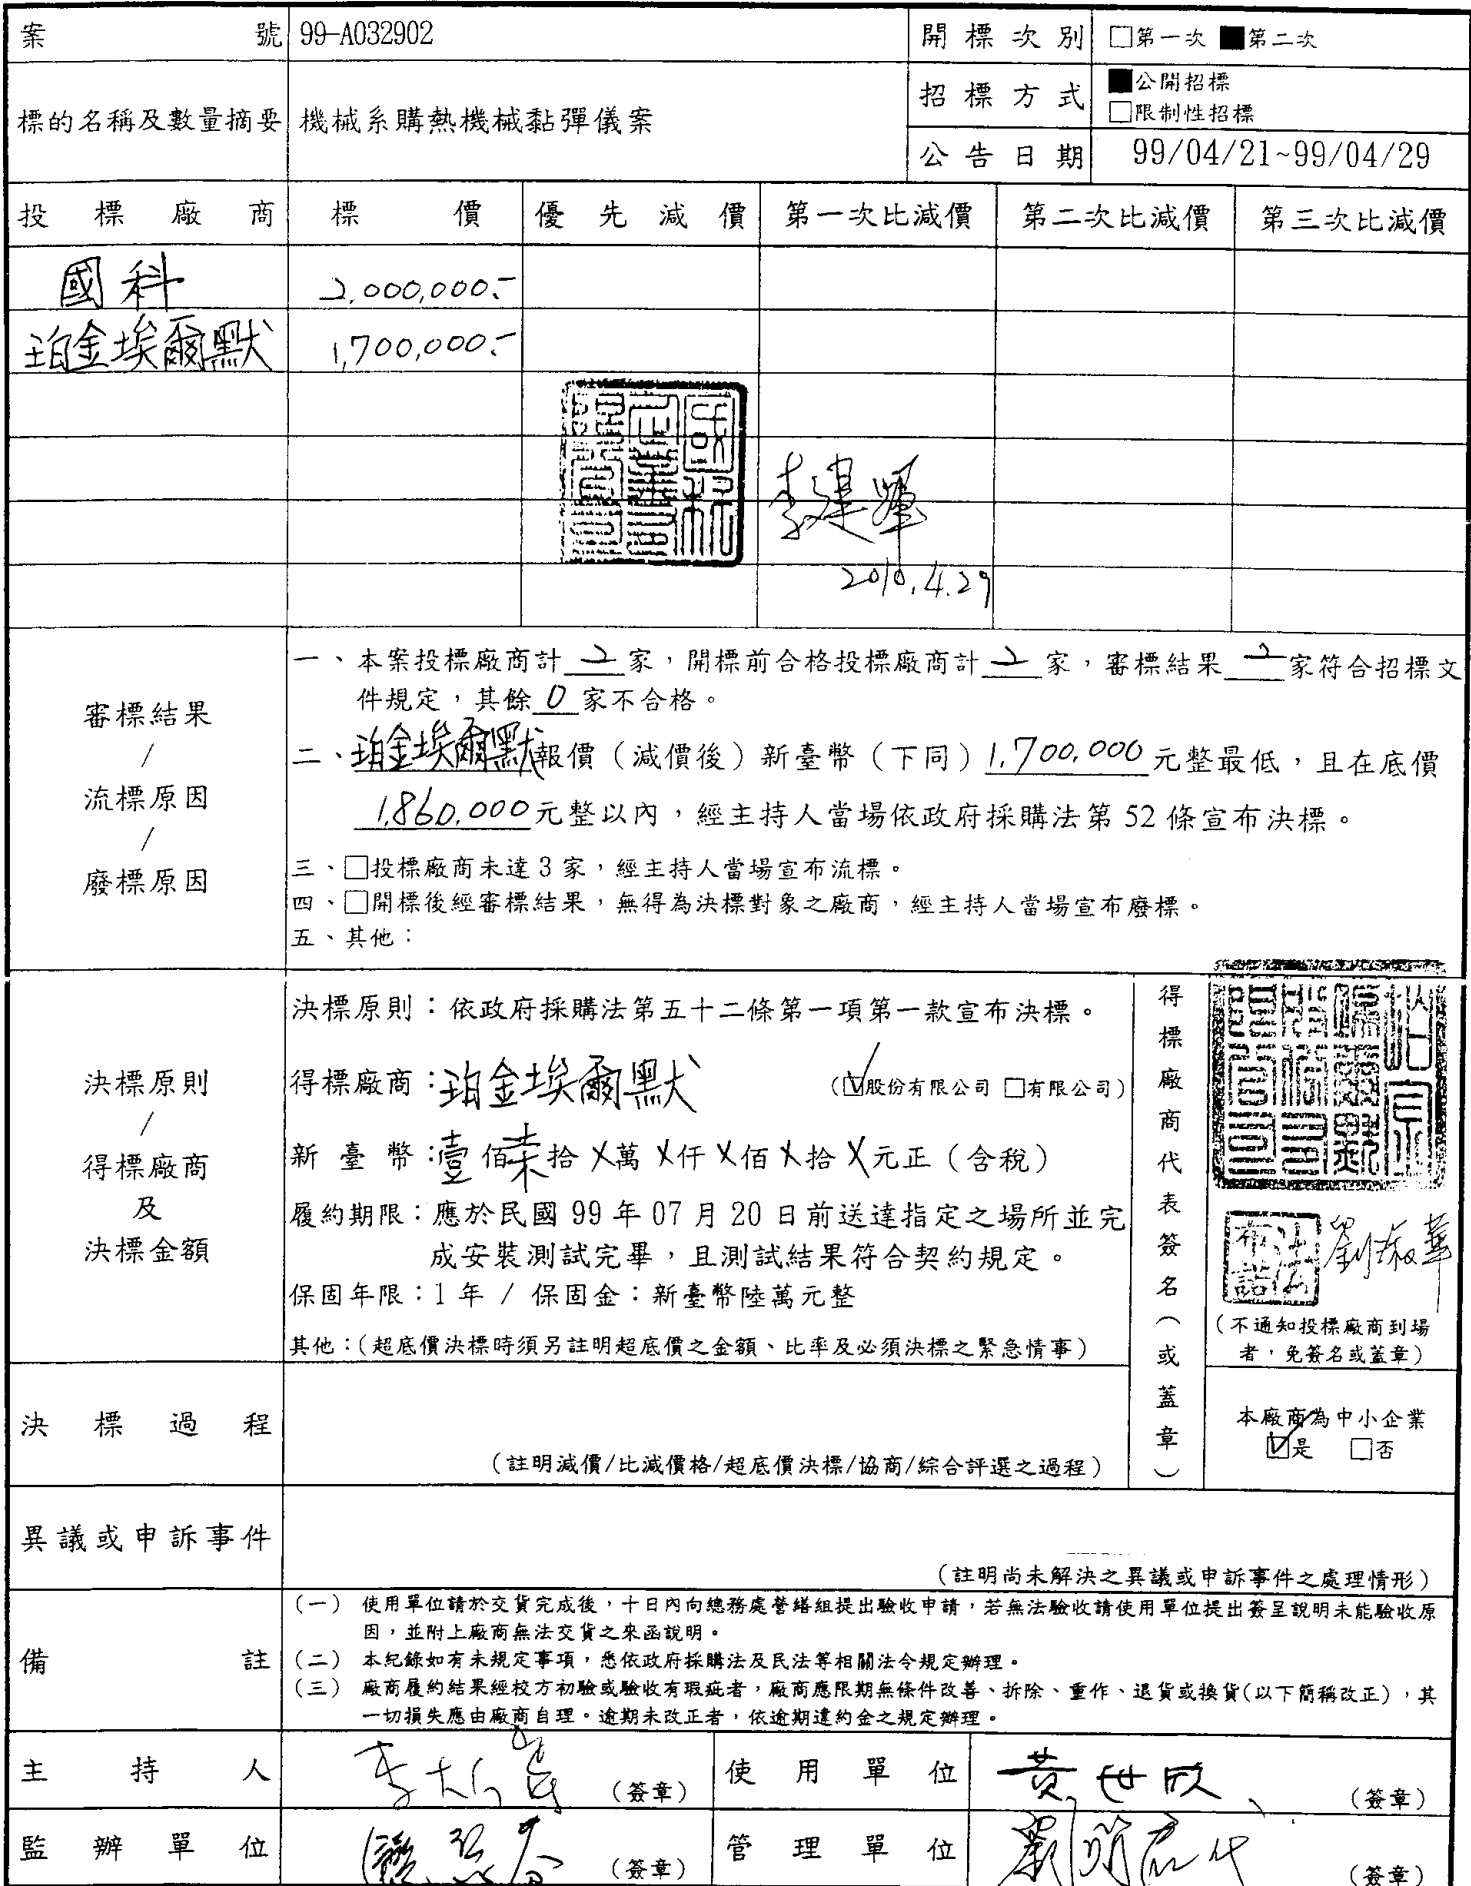 案號 99-A032902
開標次別 □第一次 ■第二次
標的名稱及數量摘要 機械系購熱機械黏彈儀案
招標方式 ■公開招標
□限制性招標
公告日期 99/04/21~99/04/29
投標廠商 標價 優先減價 第一次比減價 第二次比減價 第三次比減價
國科 2,000,000.-
珀金埃爾默 1,700,000.-
李建輝
2010.4.29
審標結果
/
流標原因
/
廢標原因
一、本案投標廠商計 2 家,開標前合格投標廠商計 2 家,審標結果 2 家符合招標文
件規定,其餘 0 家不合格。
二、珀金埃爾默報價(減價後)新臺幣(下同)1,700,000元整最低,且在底價
1,860,000元整以內,經主持人當場依政府採購法第 52 條宣布決標。
三、□投標廠商未達 3 家,經主持人當場宣布流標。
四、□開標後經審標結果,無得為決標對象之廠商,經主持人當場宣布廢標。
五、其他:
決標原則
/
得標廠商
及
決標金額
決標原則:依政府採購法第五十二條第一項第一款宣布決標。
得標廠商:珀金埃爾默 (☑股份有限公司 □有限公司)
新臺幣:壹佰柒拾X萬X仟X佰X拾X元正(含稅)
履約期限:應於民國 99 年 07 月 20 日前送達指定之場所並完
成安裝測試完畢,且測試結果符合契約規定。
保固年限:1 年 / 保固金:新臺幣陸萬元整
其他:(超底價決標時須另註明超底價之金額、比率及必須決標之緊急情事)
得標廠商代表簽名(或蓋章)
(不通知投標廠商到場
者,免簽名或蓋章)
決標過程
(註明減價/比減價格/超底價決標/協商/綜合評選之過程)
本廠商為中小企業
☑是 □否
異議或申訴事件
(註明尚未解決之異議或申訴事件之處理情形)
備註
(一) 使用單位請於交貨完成後,十日內向總務處營繕組提出驗收申請,若無法驗收請使用單位提出簽呈說明未能驗收原
因,並附上廠商無法交貨之來函說明。
(二) 本紀錄如有未規定事項,悉依政府採購法及民法等相關法令規定辦理。
(三) 廠商履約結果經校方初驗或驗收有瑕疵者,廠商應限期無條件改善、拆除、重作、退貨或換貨(以下簡稱改正),其
一切損失應由廠商自理。逾期未改正者,依逾期違約金之規定辦理。
主持人 (簽章) 使用單位 黃世欣 (簽章)
監辦單位 (簽章) 管理單位 (簽章)